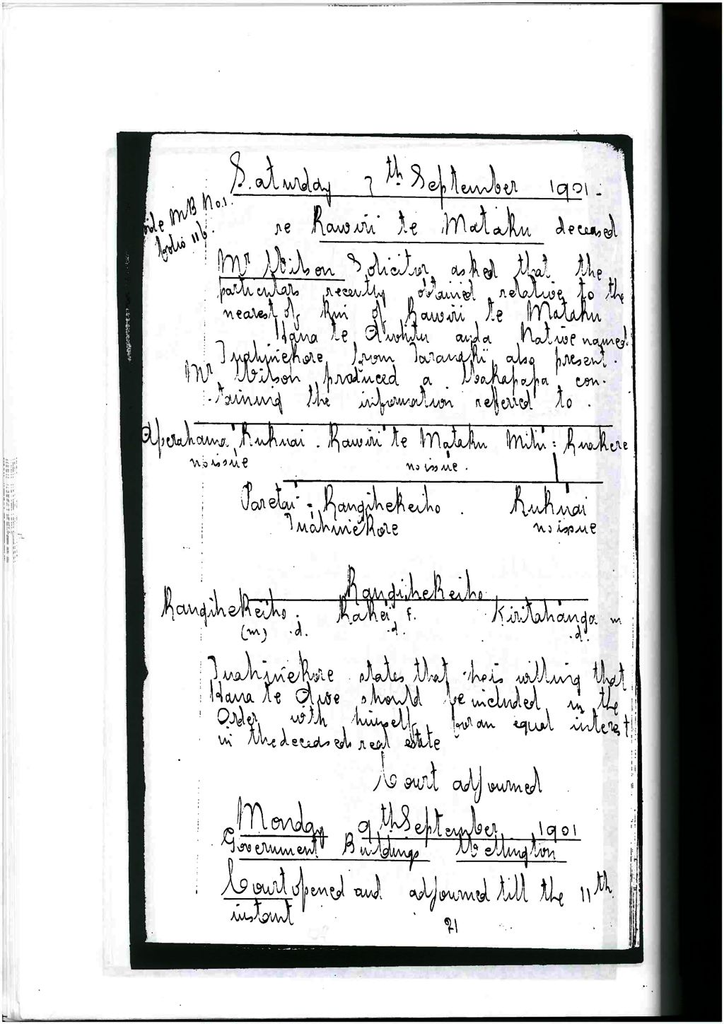 Saturday 7th September 1901.
vide MB No.1.
folio 116.
re Rawiri te Mataku deceased
Mr Wilson Solicitor asked that the
particulars recently obtained relative to the
nearest of kin of Rawiri te Mataku
Hana te and a Native named
Tuahinekore from Taranaki also present.
Mr Wilson produced a Wakapapa con-
-taining the information referred to.
Aperahama Rukuai. Rawiri te Mataku Miti : Ruakere
no issue no issue.
Paretai = Rangihekeiho. Rukuai
Tuahinekore no issue
Rangihekeiho
Rangihekeiho Rakei f. Kiritahanga m
(m) d. d. d.
Tuahinekore states that he is willing that
Hana te should be included in the
Order with himself for an equal interest
in the deceaseds real estate
Court adjourned
Monday 9th September 1901
Government Buildings Wellington
Court opened and adjourned till the 11th
instant
71